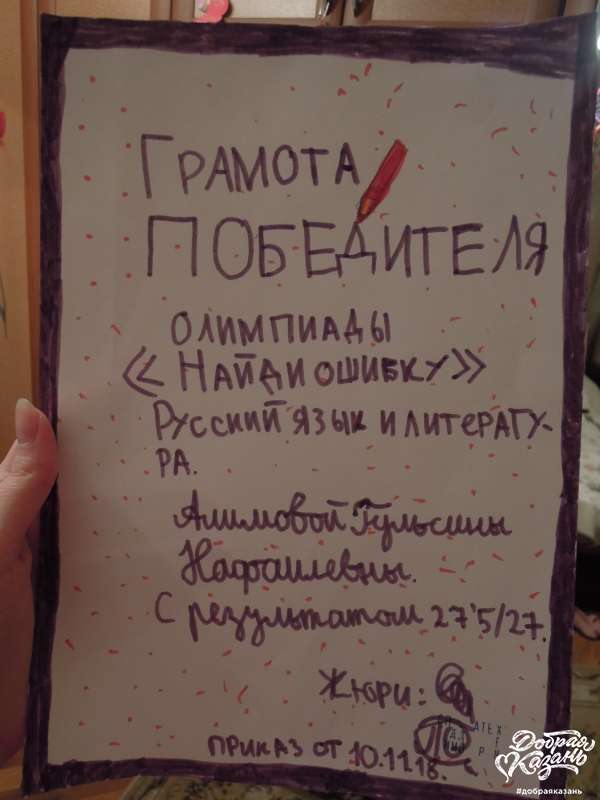 ГРАМОТА
ПОБЕДИТЕЛЯ
ОЛИМПИАДЫ
«НАЙДИ ОШИБКУ»
РУССКИЙ ЯЗЫК И ЛИТЕРАТУ-
РА.
Алимовой Гульсины
Нафаилевны.
С результатом 27'5/27.
ЖЮРИ:
ПРИКАЗ ОТ 10.11.18.
Добрая
Казань
#добраяказань